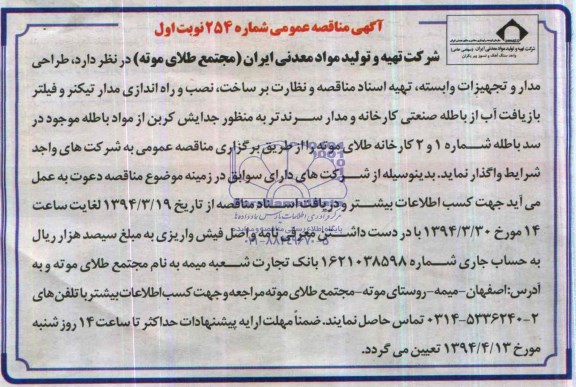 آگهی مناقصه عمومی شماره ۲۵۴ نوبت اول
شرکت تهیه و تولید مواد معدنی ایران (سهامی خاص)
شرکت تهیه و تولید مواد معدنی ایران (مجتمع طلای موته) در نظر دارد، طراحی
مدار و تجهیزات وابسته، تهیه اسناد مناقصه و نظارت بر ساخت، نصب و راه اندازی مدار تیکنر و فیلتر
بازیافت آب از باطله صنعتی کارخانه و مدار سرند تر به منظور جدایش کربن از مواد باطله موجود در
سد باطله شماره ۱ و ۲ کارخانه طلای موته را از طریق برگزاری مناقصه عمومی به شرکت های واجد
شرایط واگذار نماید. بدینوسیله از شرکت های دارای سوابق در زمینه موضوع مناقصه دعوت به عمل
می آید جهت کسب اطلاعات بیشتر و دریافت اسناد مناقصه از تاریخ ۱۳۹۴/۳/۱۹ لغایت ساعت
۱۴ مورخ ۱۳۹۴/۳/۳۰ با در دست داشتن معرفی نامه و اصل فیش واریزی به مبلغ سیصد هزار ریال
به حساب جاری شماره ۱۶۲۱۰۳۸۵۹۸ بانک تجارت شعبه میمه به نام مجتمع طلای موته و به
آدرس: اصفهان-میمه-روستای موته-مجتمع طلای موته مراجعه و جهت کسب اطلاعات بیشتر با تلفن های
۰۳۱۴-۵۳۳۶۲۴۰-۲ تماس حاصل نمایند. ضمناً مهلت ارایه پیشنهادات حداکثر تا ساعت ۱۴ روز شنبه
مورخ ۱۳۹۴/۴/۱۳ تعیین می گردد.